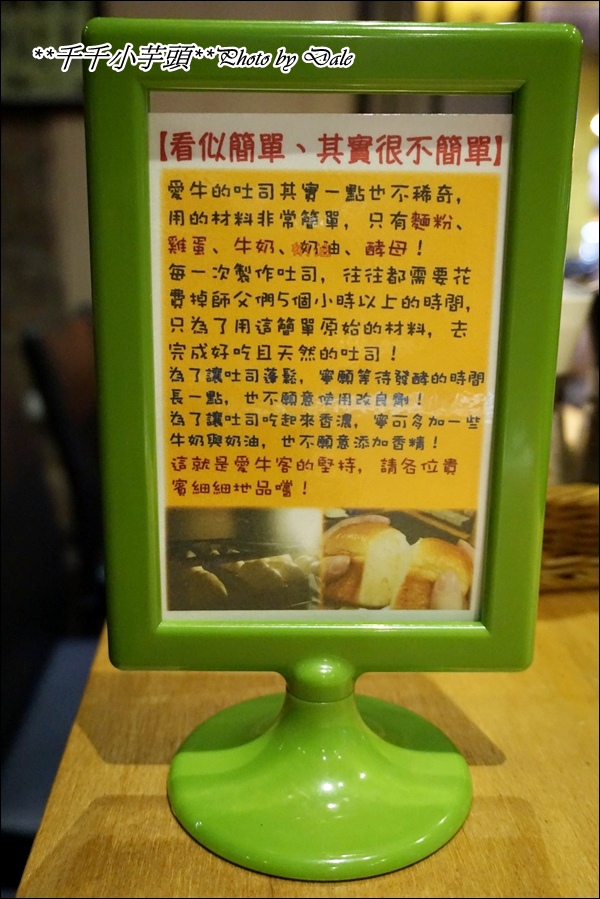 **千千小芋頭**Photo by Dale
【看似簡單、其實很不簡單】
愛牛的吐司其實一點也不稀奇，
用的材料非常簡單，只有麵粉、
雞蛋、牛奶、奶油、酵母！
每一次製作吐司，往往都需要花
費掉師父們5個小時以上的時間，
只為了用這簡單原始的材料，去
完成好吃且天然的吐司！
為了讓吐司蓬鬆，寧願等待發酵的時間
長一點，也不願意使用改良劑！
為了讓吐司吃起來香濃，寧可多加一些
牛奶與奶油，也不願意添加香精！
這就是愛牛客的堅持，請各位貴
賓細細地品嚐！